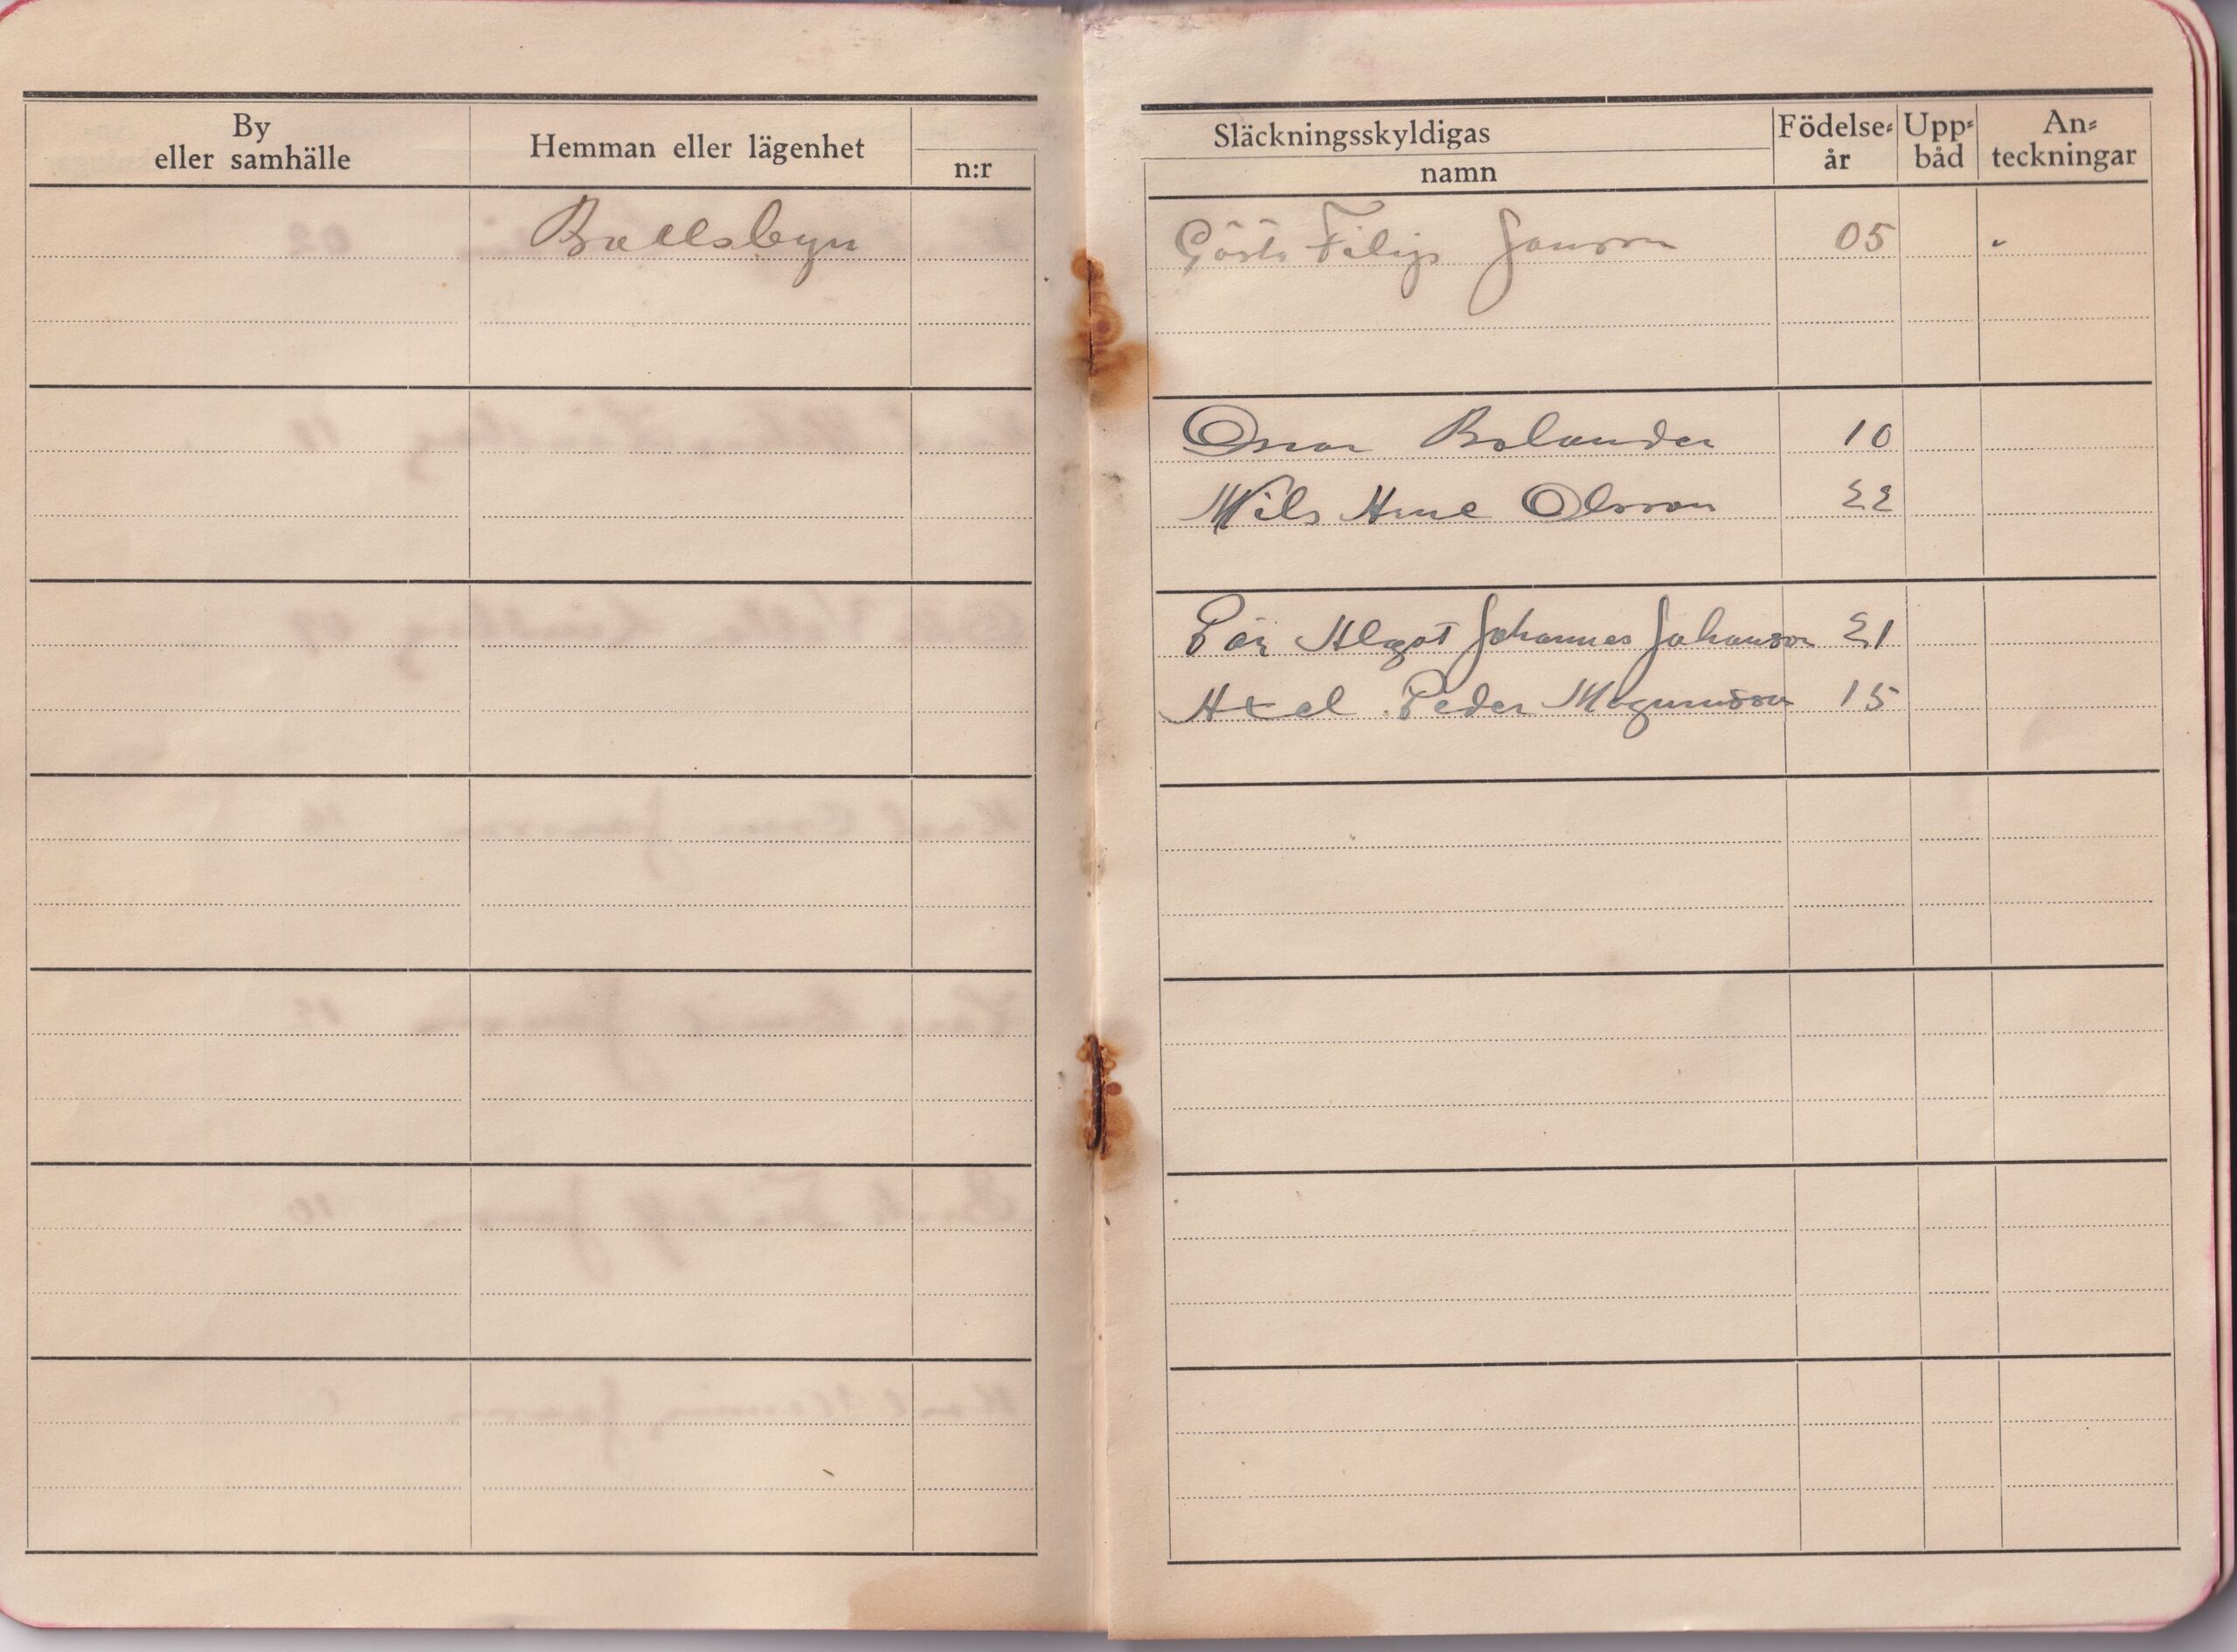 By
eller samhälle
Hemman eller lägenhet
n:r
Ballsbyn
Släckningsskyldigas
namn
Födelse=
år
Upp=
båd
An=
teckningar
Gösta Filip Jansson 05
Oscar Bolander 10
Nils Arne Olsson 22
Pär Algot Johannes Johansson 21
Axel Peder Magnusson 15